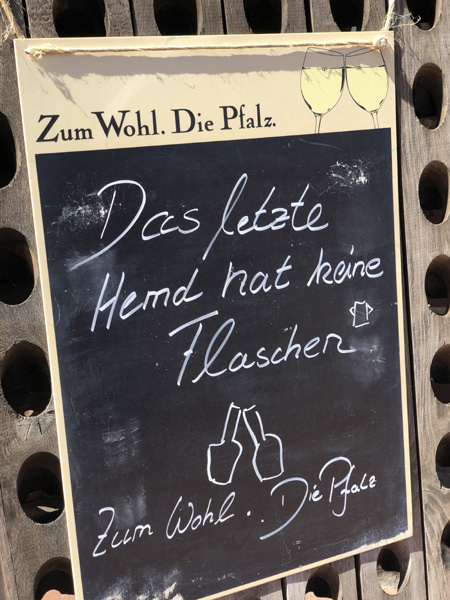 Zum Wohl. Die Pfalz.
Das letzte
Hemd hat keine
Flaschen
Zum Wohl. Die Pfalz